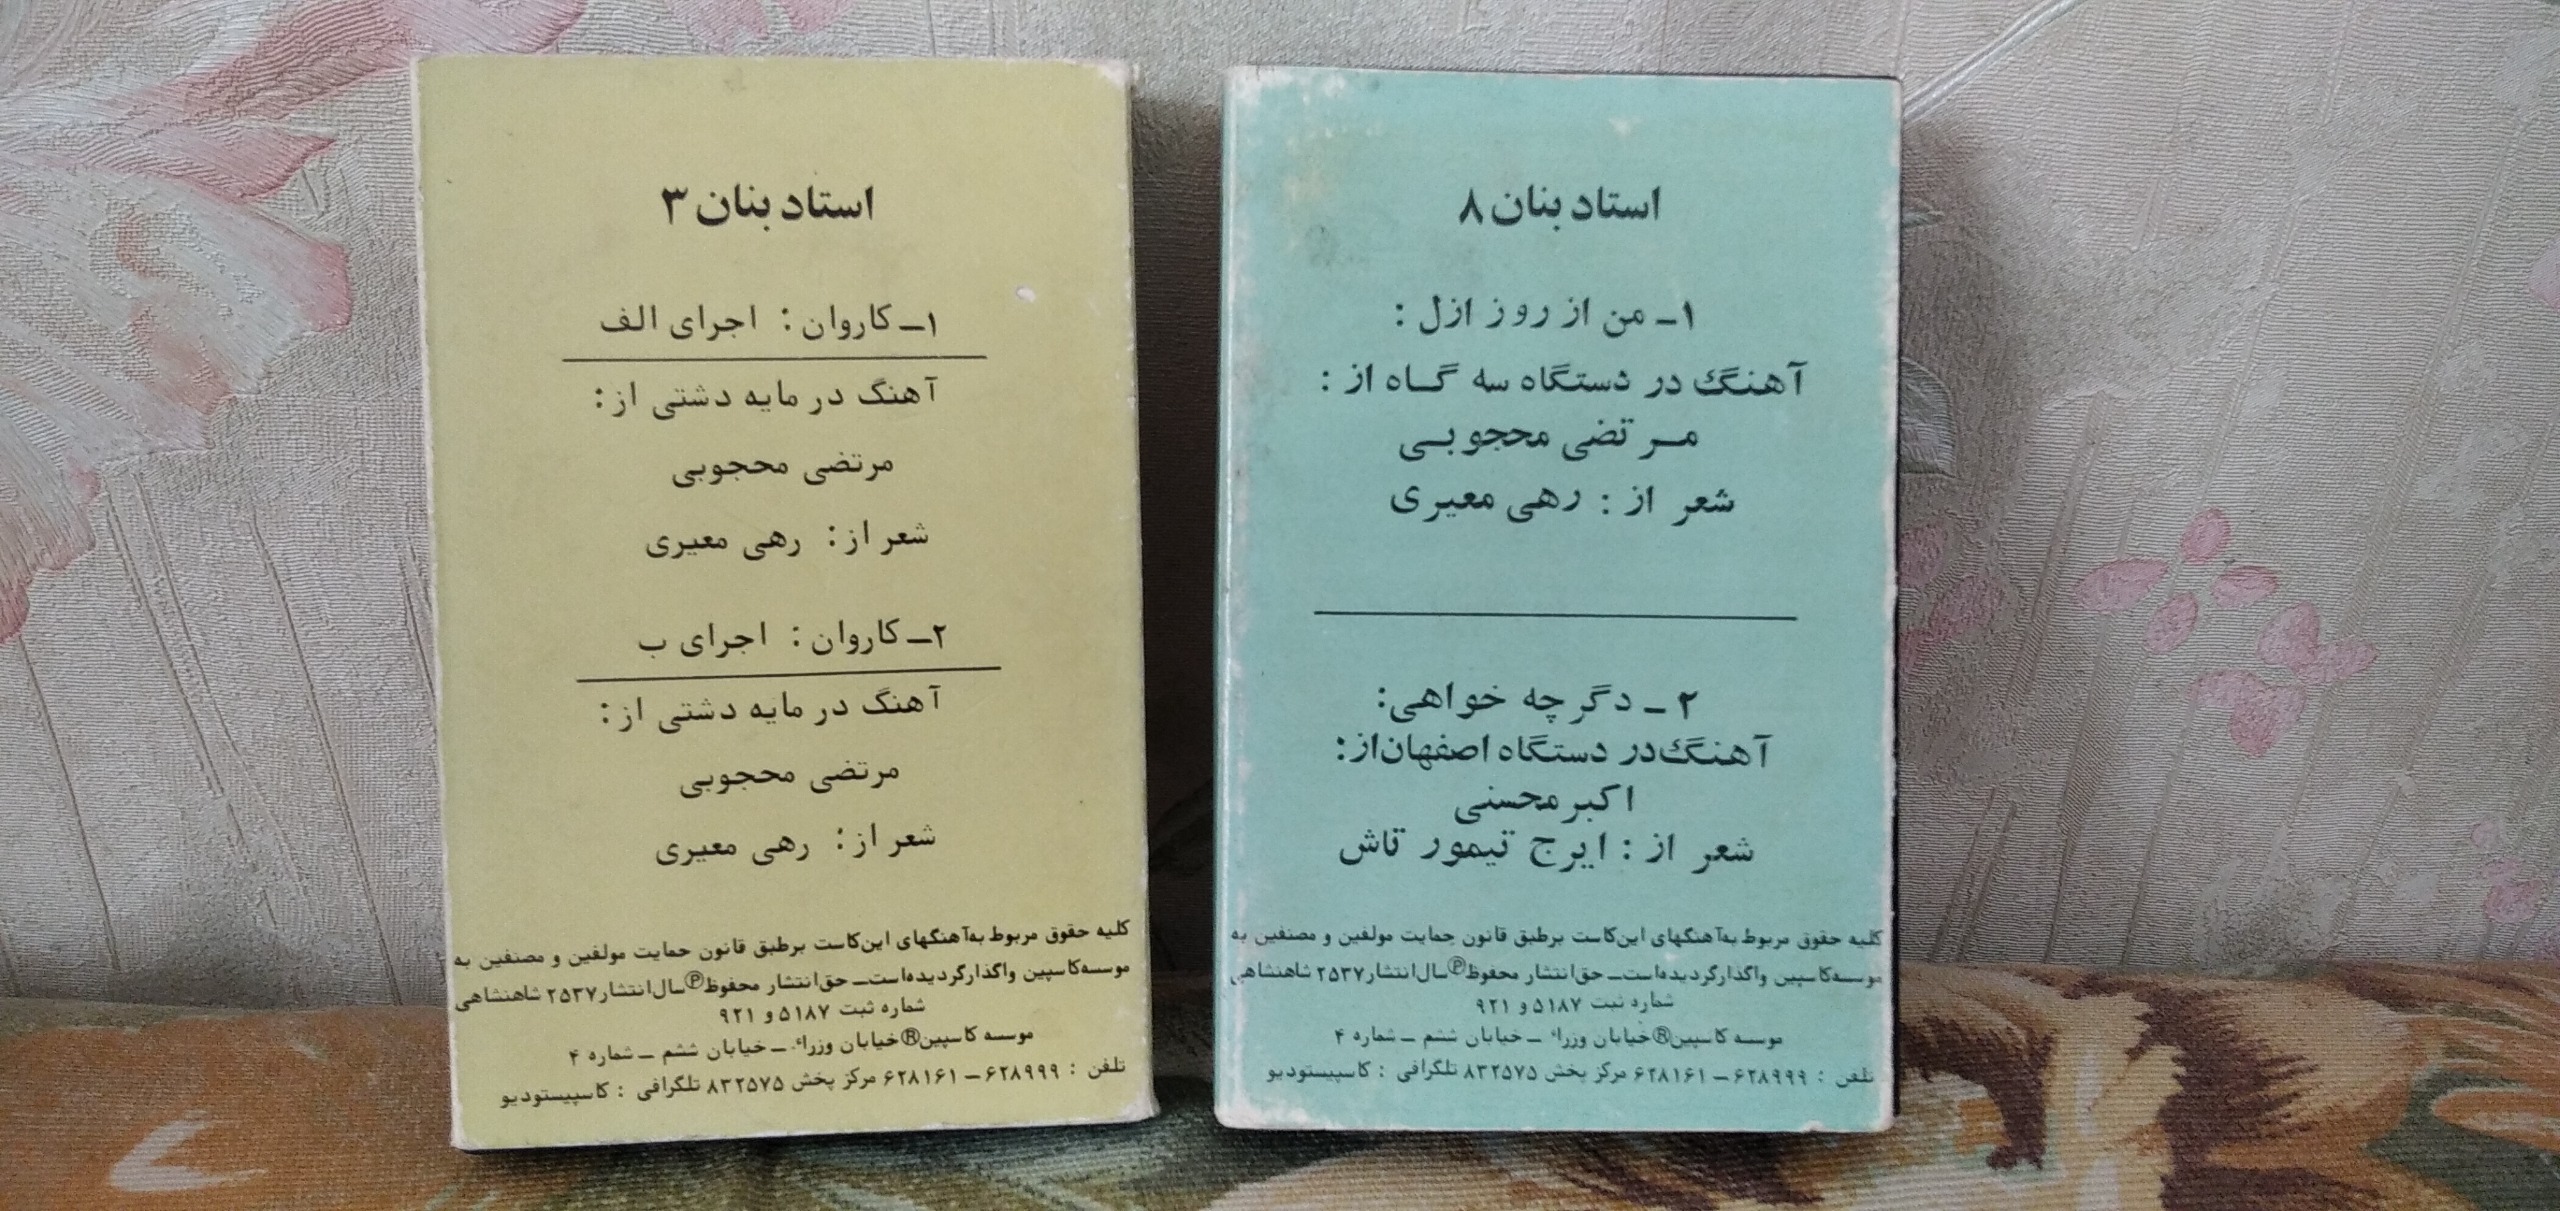 استاد بنان ۳
۱ـ کاروان : اجرای الف
آهنگ در مایه دشتی از :
مرتضی محجوبی
شعر از : رهی معیری
۲ـ کاروان : اجرای ب
آهنگ در مایه دشتی از :
مرتضی محجوبی
شعر از : رهی معیری
کلیه حقوق مربوط به‌آهنگهای این‌کاست برطبق قانون حمایت مولفین و مصنفین به
موسسه‌کاسپین واگذارگردیده‌است ــ حق‌انتشار محفوظ Ⓟ سال‌انتشار ۲۵۳۷ شاهنشاهی
شماره ثبت ۵۱۸۷ و ۹۲۱
موسسه کاسپین ® خیابان وزراء ــ خیابان ششم ــ شماره ۴
تلفن : ۶۲۸۹۹۹ ــ ۶۲۸۱۶۱ مرکز پخش ۸۳۲۵۷۵ تلگرافی : کاسپیستودیو
استاد بنان ۸
۱ـ من از روز ازل :
آهنگ در دستگاه سه گـاه از :
مـرتضی محجوبـی
شعر از : رهی معیری
۲ ـ دگر چه خواهی:
آهنگ‌در دستگاه اصفهان‌از:
اکبر محسنی
شعر از : ایرج تیمور تاش
کلیه حقوق مربوط به‌آهنگهای این‌کاست برطبق قانون حمایت مولفین و مصنفین به
موسسه‌کاسپین واگذارگردیده‌است ــ حق‌انتشار محفوظ Ⓟ سال‌انتشار ۲۵۳۷ شاهنشاهی
شماره ثبت ۵۱۸۷ و ۹۲۱
موسسه کاسپین ® خیابان وزراء ــ خیابان ششم ــ شماره ۴
تلفن : ۶۲۸۹۹۹ ــ ۶۲۸۱۶۱ مرکز پخش ۸۳۲۵۷۵ تلگرافی : کاسپیستودیو